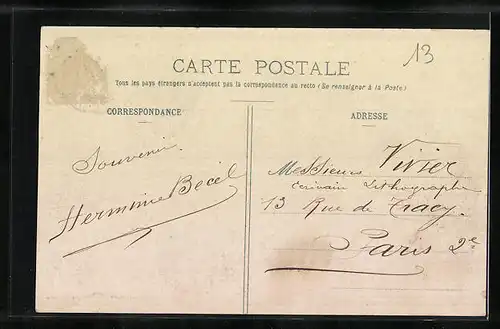 13
CARTE POSTALE
Tous les pays étrangers n'acceptent pas la correspondance au recto (Se renseigner à la Poste)
CORRESPONDANCE
Souvenir
Hermine Bécel
ADRESSE
Messieurs Vivier
Ecrivain Lithographe
13 Rue de Tracy.
Paris 2e